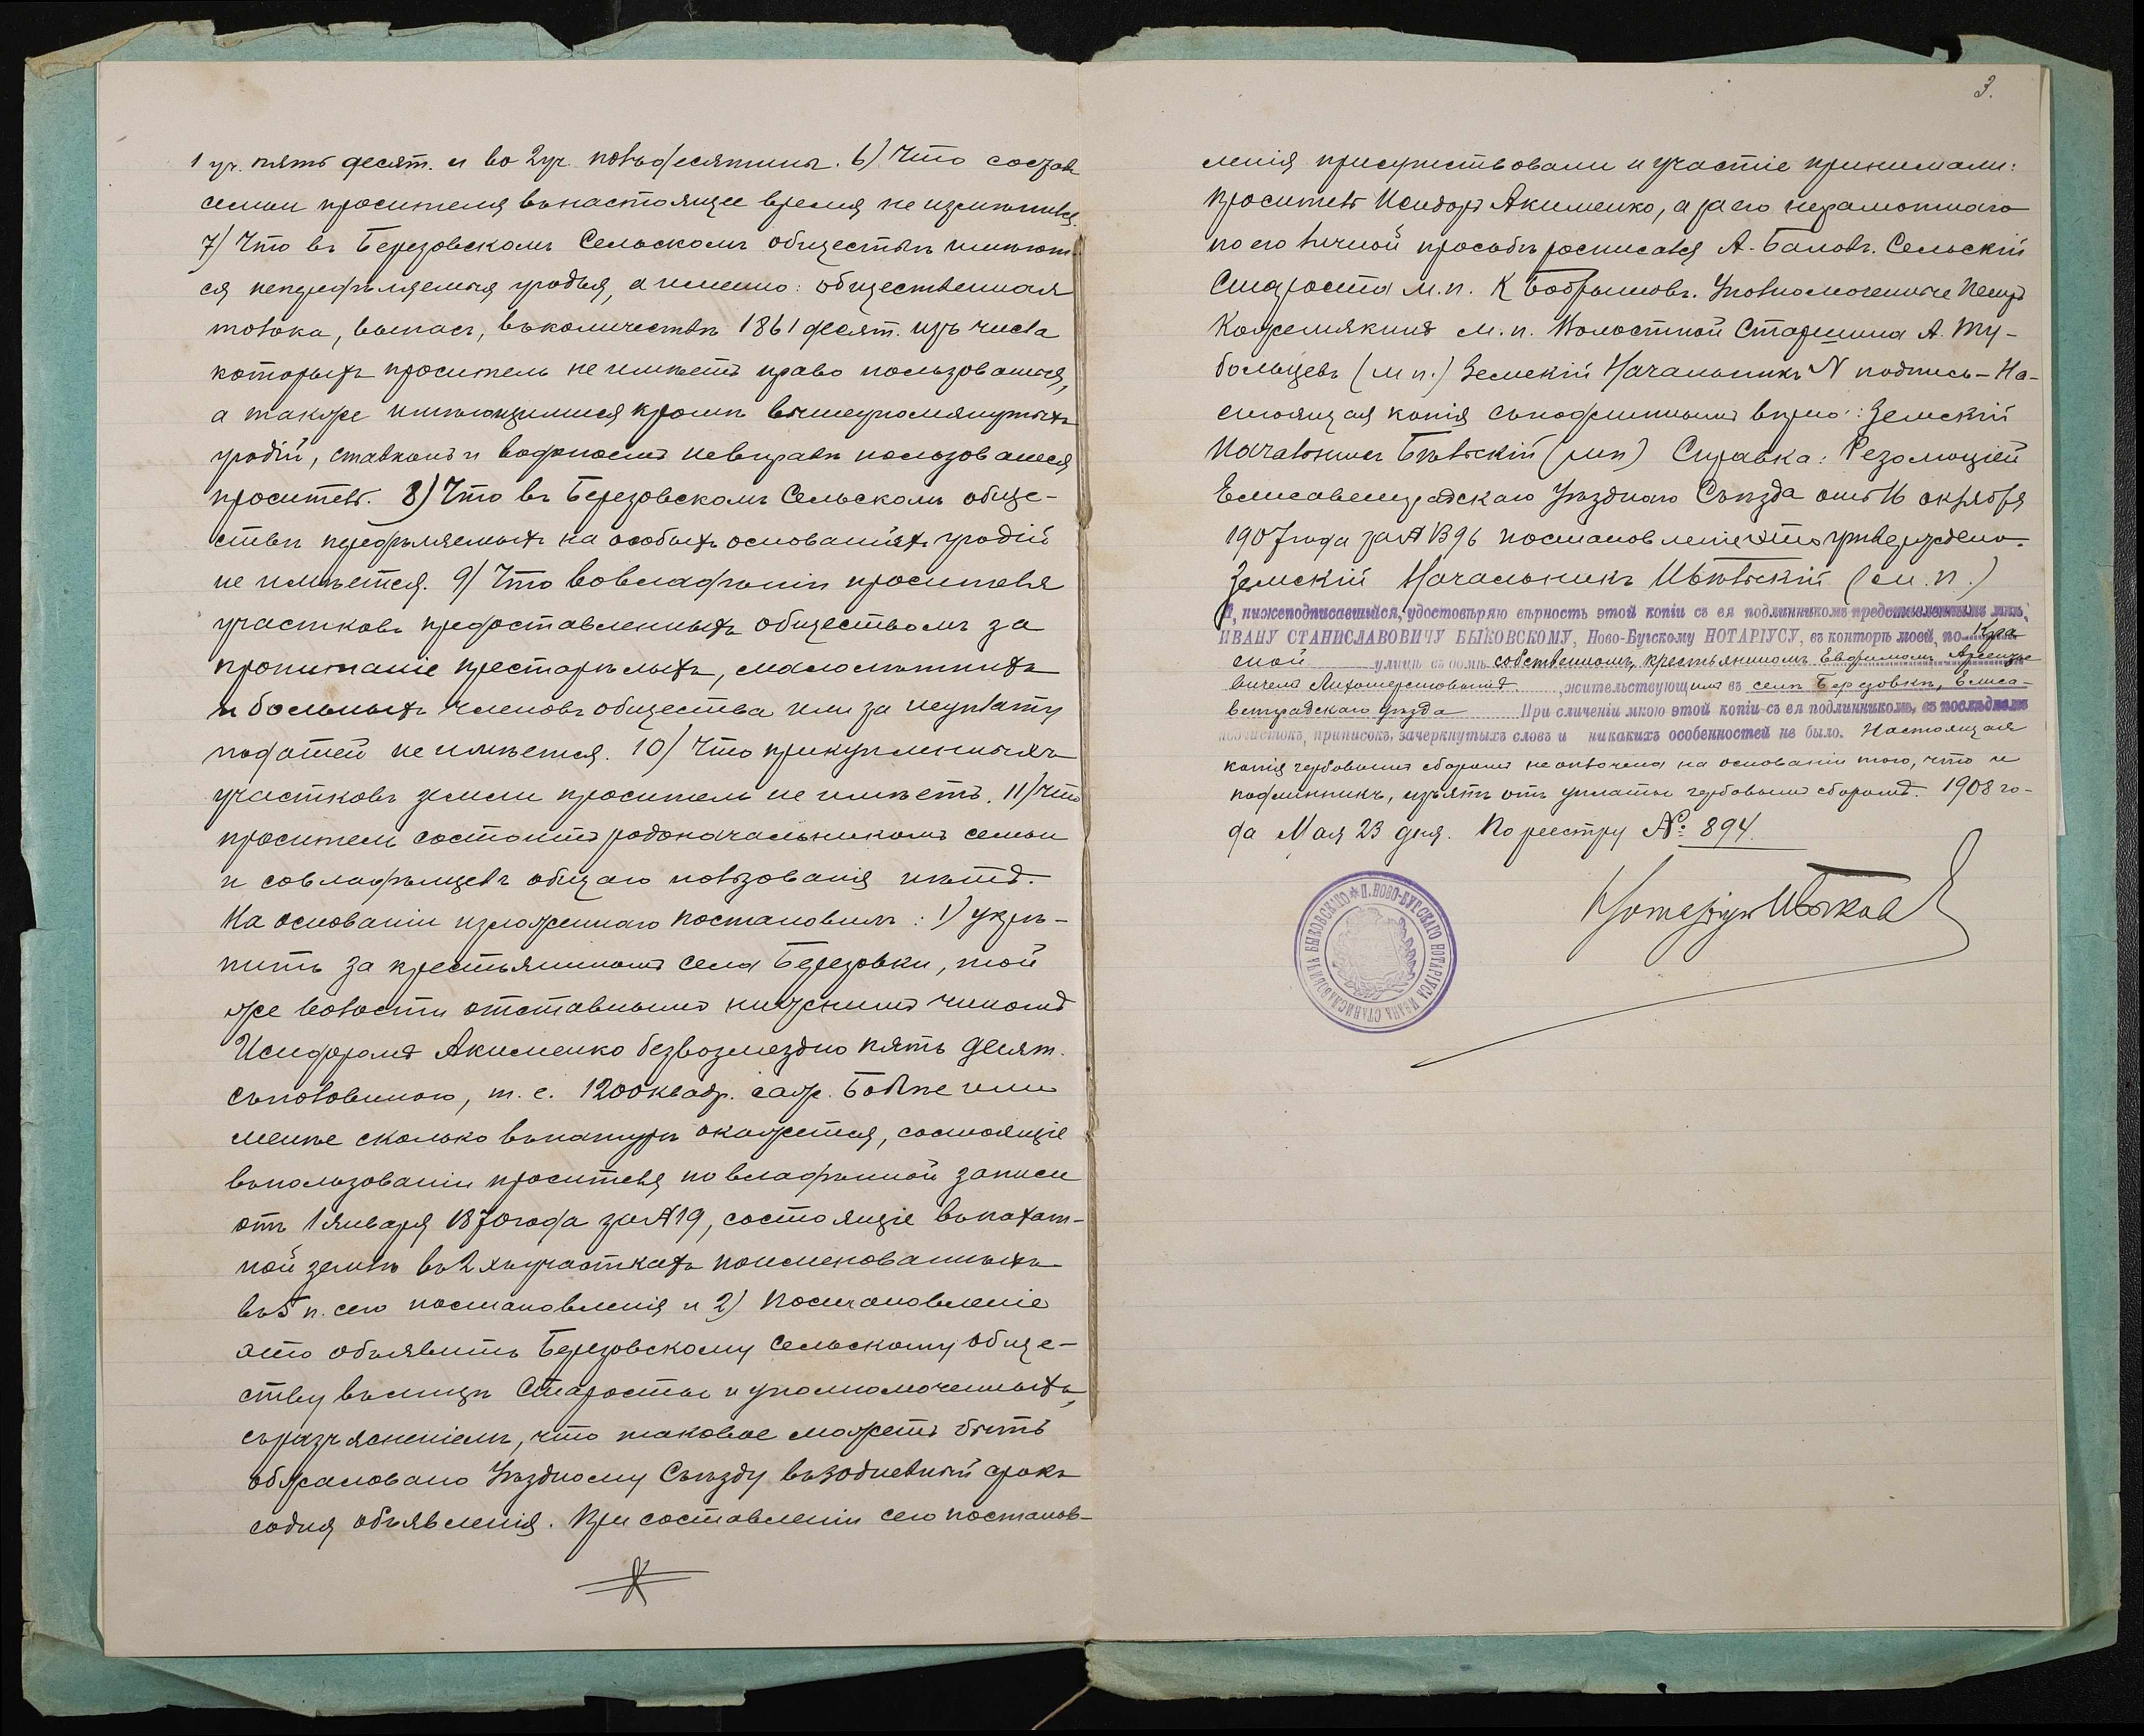 1 уч. пять десят. и во 2 уч. полъдесятины. 6) Что составъ
семьи просителя въ настоящее время не измѣнился.
7) Что въ Березовскомъ Сельскомъ обществѣ имѣют-
ся непередѣляемыя угодья, а именно: общественная
толока, выпасъ, въ количествѣ 1861 десят. изъ числа
которыхъ проситель не имѣетъ право пользоваться,
а также имѣющимися кромѣ вышеупомянутыхъ
угодій, ставкомъ и водопоемъ невправѣ пользоваться
проситель. 8) Что въ Березовскомъ Сельскомъ обще-
ствѣ передѣляемыхъ на особыхъ основаніяхъ угодій
не имѣется. 9) Что во владѣніи просителя
участковъ предоставленныхъ обществомъ за
пропитаніе престарѣлыхъ, малолѣтнихъ
и больныхъ членовъ общества или за неуплату
податей не имѣется. 10) Что прикупленныхъ
участковъ земли проситель не имѣетъ. 11) Что
проситель состоитъ родоначальникомъ семьи
и совладѣльцевъ общаго пользованія нѣтъ.
На основаніи изложеннаго постановилъ: 1) укрѣ-
пить за крестьяниномъ села Березовки, той
же волости отставнымъ нижнимъ чиномъ
Исидоромъ Акименко безвозмездно пять десят.
съ половиною, т. е. 1200 квадр. саж. болѣе или
менѣе сколько въ натурѣ окажется, состоящіе
въ пользованіи просителя по владѣнной записи
отъ 1 Января 1870 года за № 19, состоящіе въ пахат-
ной землѣ въ 2хъ участкахъ поименованныхъ
въ 5 п. сего постановленія и 2) Постановленіе
это объявить Березовскому Сельскому обще-
ству въ лицѣ Старосты и уполномоченныхъ,
съ разъясненіемъ, что таковое можетъ быть
обжаловано Уѣздному Съѣзду въ 30 дневный срокъ
со дня объявленія. При составленіи сего постанов-
3.
ленія присутствовали и участіе принимали:
проситель Исидоръ Акименко, а за его неграмотнаго
по его личной просьбѣ росписался А. Баловъ. Сельскій
Староста м.п. К Бобрышовъ. Уполномоченные Петръ
Кожемякинъ м. п. Волостной Старшина А. Ту-
больцевъ (м п.) Земскій Начальникъ N подпись – На-
стоящая копія съ подлиннымъ вѣрно: Земскій
Начальникъ Бѣльскій (мп) Справка: Резолюціей
Елисаветградскаго Уѣзднаго Съѣзда отъ 16 октября
1907 года за № 1396 постановленіе это утверждено.
Земскій Начальникъ Бѣльскій (м. п.)
Я, нижеподписавшійся, удостовѣряю вѣрность этой копіи съ ея подлинникомъ представленнымъ мнѣ,
ИВАНУ СТАНИСЛАВОВИЧУ БЫКОВСКОМУ, Ново-Бугскому НОТАРІУСУ, въ конторѣ моей, по
улицѣ въ домѣ собственномъ, крестьяниномъ Евфимомъ Арсенье
вичемъ Лихошерстовымъ, жительствующимъ въ селѣ Березовкѣ, Елиса-
ветградскаго уѣзда При сличеніи мною этой копіи съ ея подлинникомъ, въ послѣднемъ
подчистокъ, приписокъ, зачеркнутыхъ словъ и никакихъ особенностей не было. Настоящая
копія гербовымъ сборомъ не оплочена на основаніи того, что и
подлинникъ, изъятъ отъ уплаты гербовымъ сборомъ. 1908 го-
да Мая 23 дня. По реестру № 894.
Нотаріусъ Быковскій
П. НОВО-БУГСКАГО НОТАРІУСА ИВАНА СТАНИСЛАВОВИЧА БЫКОВСКАГО